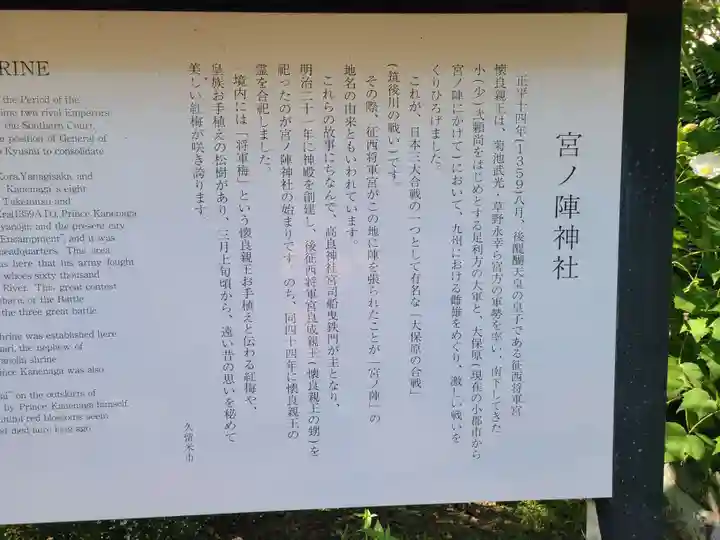 宮ノ陣神社
正平十四年(1359)八月、後醍醐天皇の皇子である征西将軍宮
懐良親王は、菊池武光・草野永幸ら宮方の軍勢を率い、南下してきた
小(少)弐頼尚をはじめとする足利方の大軍と、大保原(現在の小郡市から
宮ノ陣にかけて)において、九州における雌雄をめぐり、激しい戦いを
くりひろげました。
これが、日本三大合戦の一つとして有名な「大保原の合戦」
(筑後川の戦い)です。
その際、征西将軍宮がこの地に陣を張られたことが「宮ノ陣」の
地名の由来ともいわれています。
これらの故事にちなんで、高良神社宮司船曳鉄門が主となり、
明治二十一年に神殿を創建し、後征西将軍宮良成親王(懐良親王の甥)を
祀ったのが宮ノ陣神社の始まりです。のち、同四十四年に懐良親王の
霊を合祀しました。
境内には「将軍梅」という懐良親王お手植えと伝わる紅梅や、
皇族お手植えの松樹があり、三月上旬頃から、遠い昔の思いを秘めて
美しい紅梅が咲き誇ります。
久留米市
RINE
the Period of the
time two rival Emperors
the Southern Court,
position of General of
Kyushu to consolidate
Kora, Yanagisaka, and
Kanenaga is eight
Takemitsu and
Era(1359A.D.), Prince Kanenaga
yanojin and the present city
Ensampment", and it was
headquarters. This area
as here that his army fought
whoes sixty thousand
River. This great contest
baru, or the Battle
the three great battle
shrine was established here
nari, the nephew of
anojin shrine
rince Kanenaga was also
" on the outskirts of
by Prince Kanenaga himself.
red blossoms seem
long ago